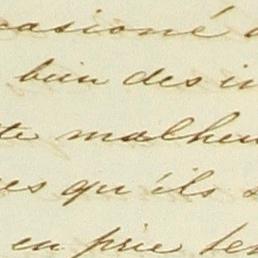 casioné a
bien des i
te malheu
es qu'ils s
en prie te